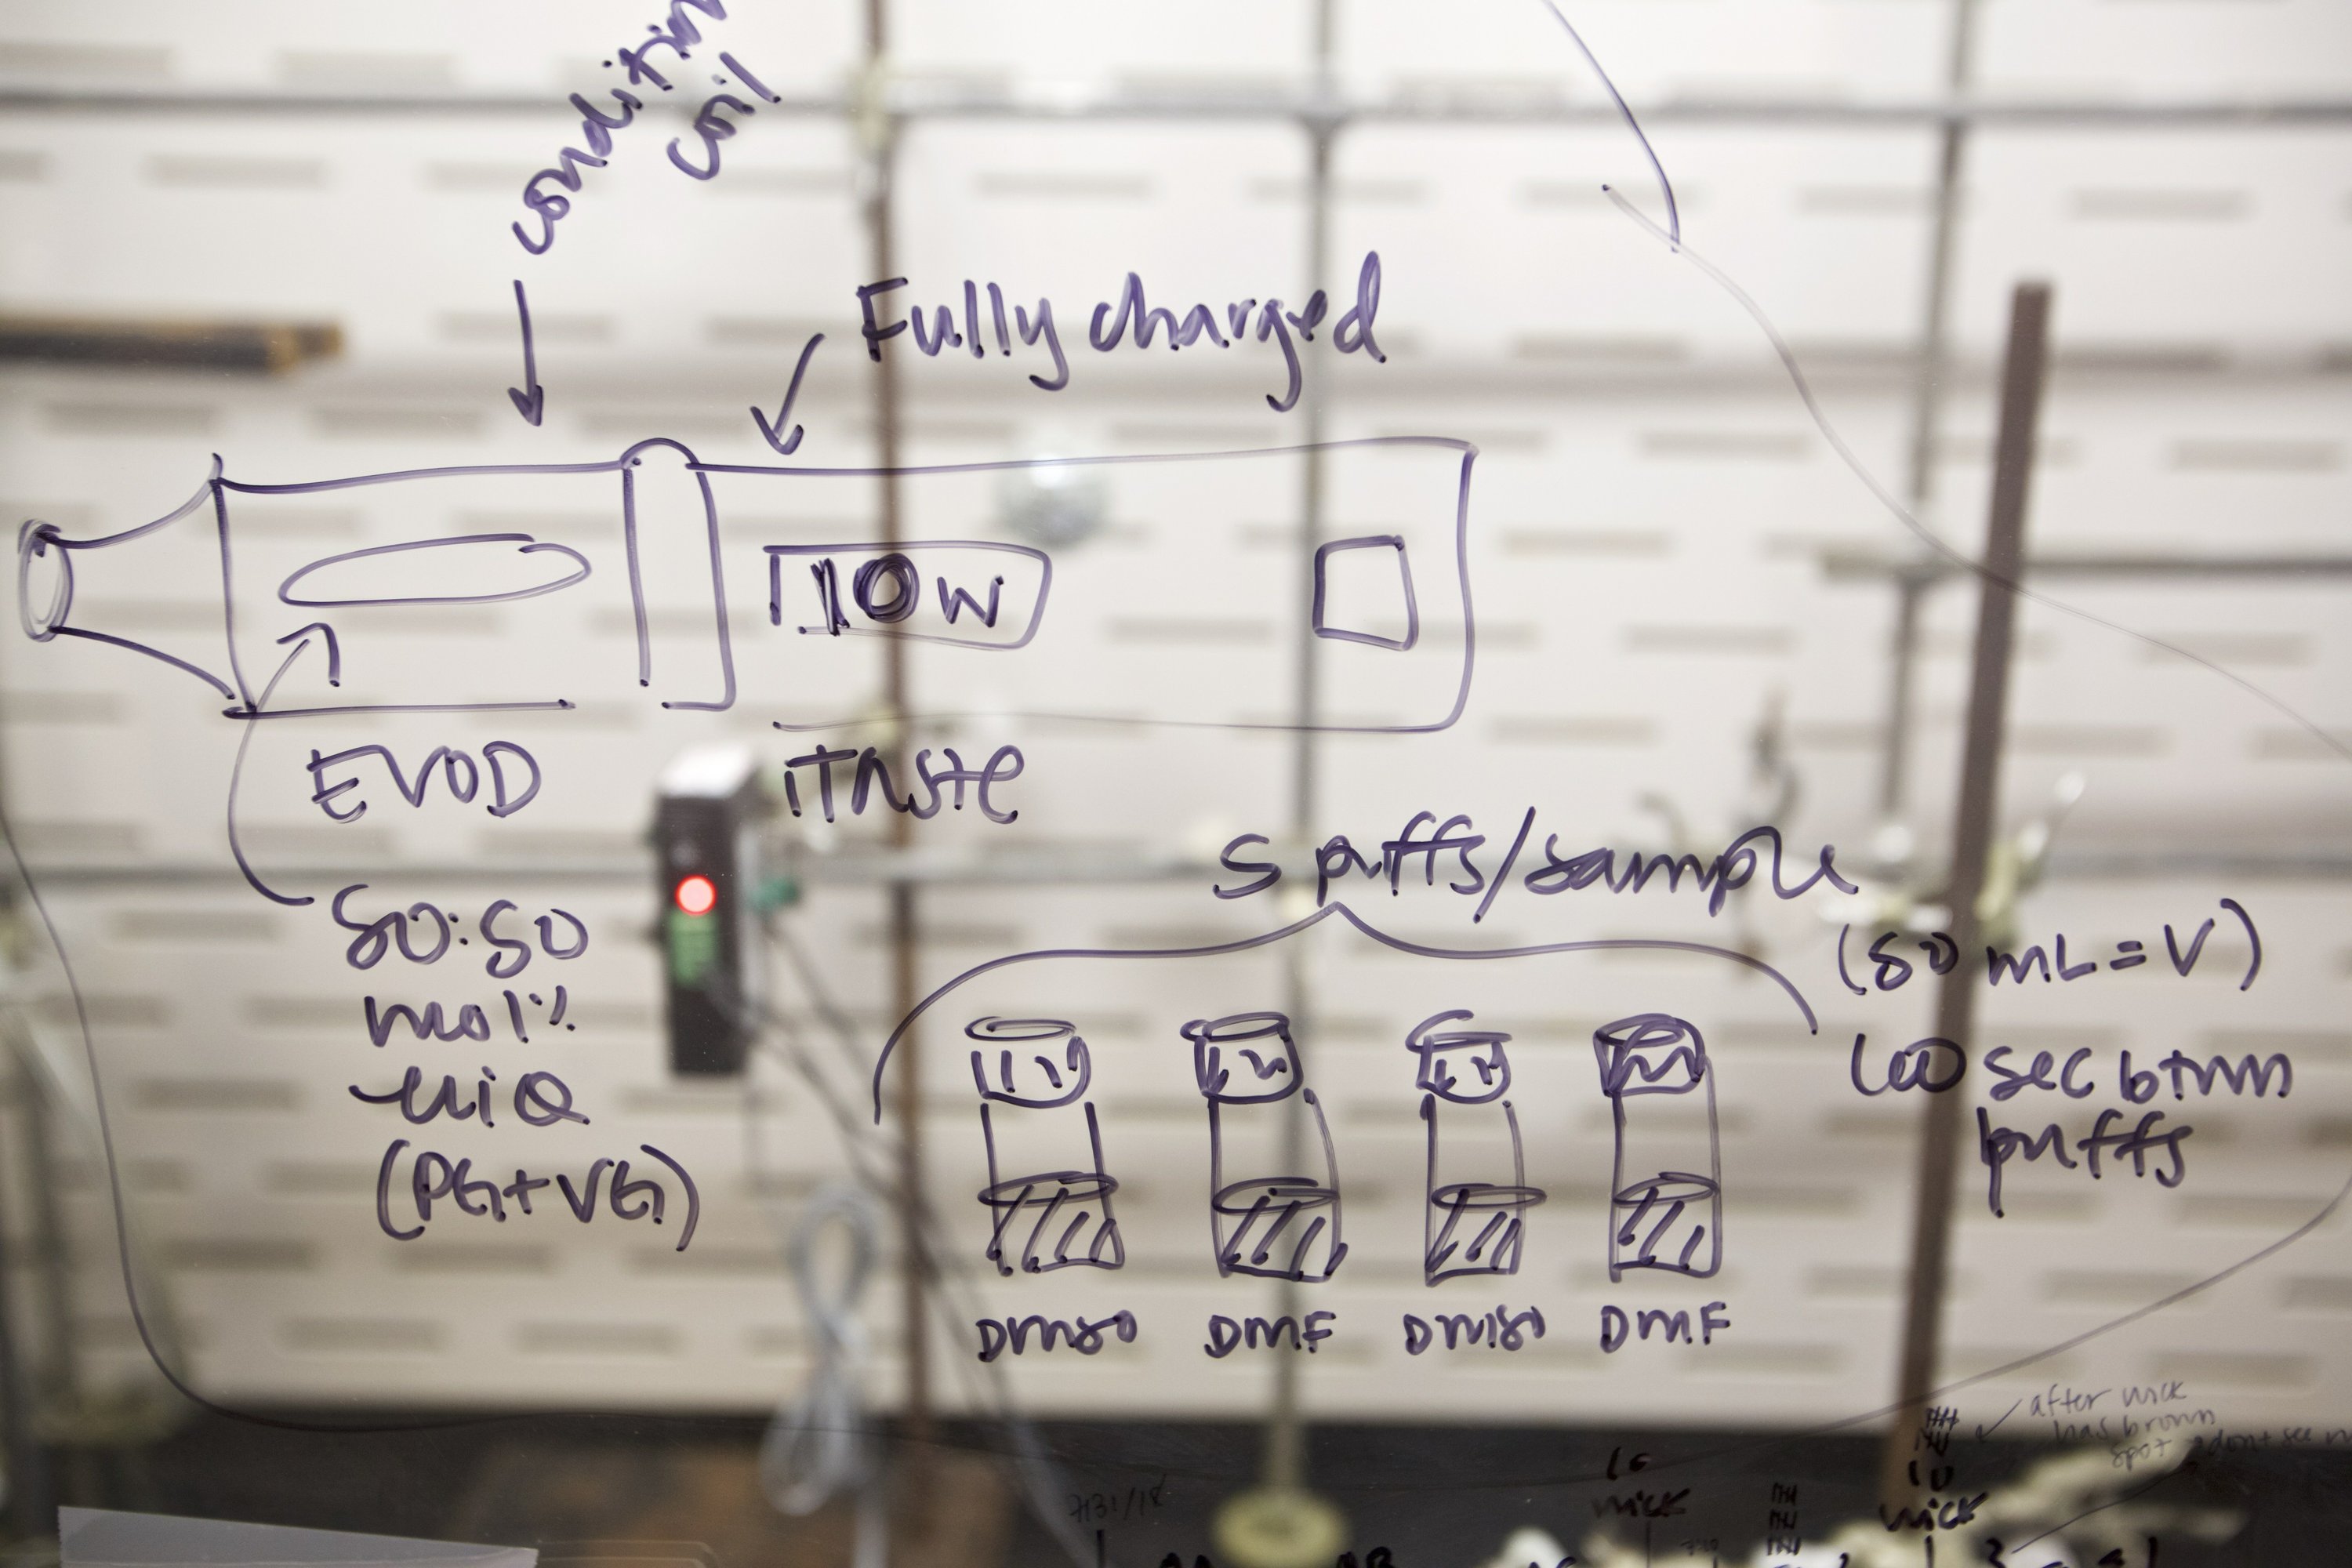 condition
coil
Fully charged
10 W
EVOD
iTaste
5 puffs/sample
50:50
mol%
eliQ
(PG+VG)
(50 mL = V)
60 sec btwn
puffs
DMSO DMF DMSO DMF
after wick
has brown
spot don't see
7/31/18
wick
wick